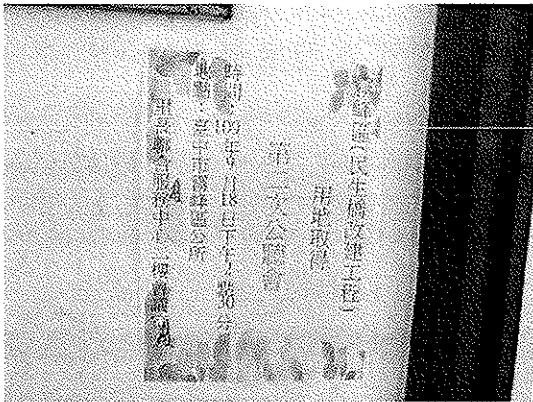 區民生橋改建工程)
用地取得
第二次公聽會
時間：103年9月18日下午2點30分
地點：臺中市霧峰區公所
聯合服務中心